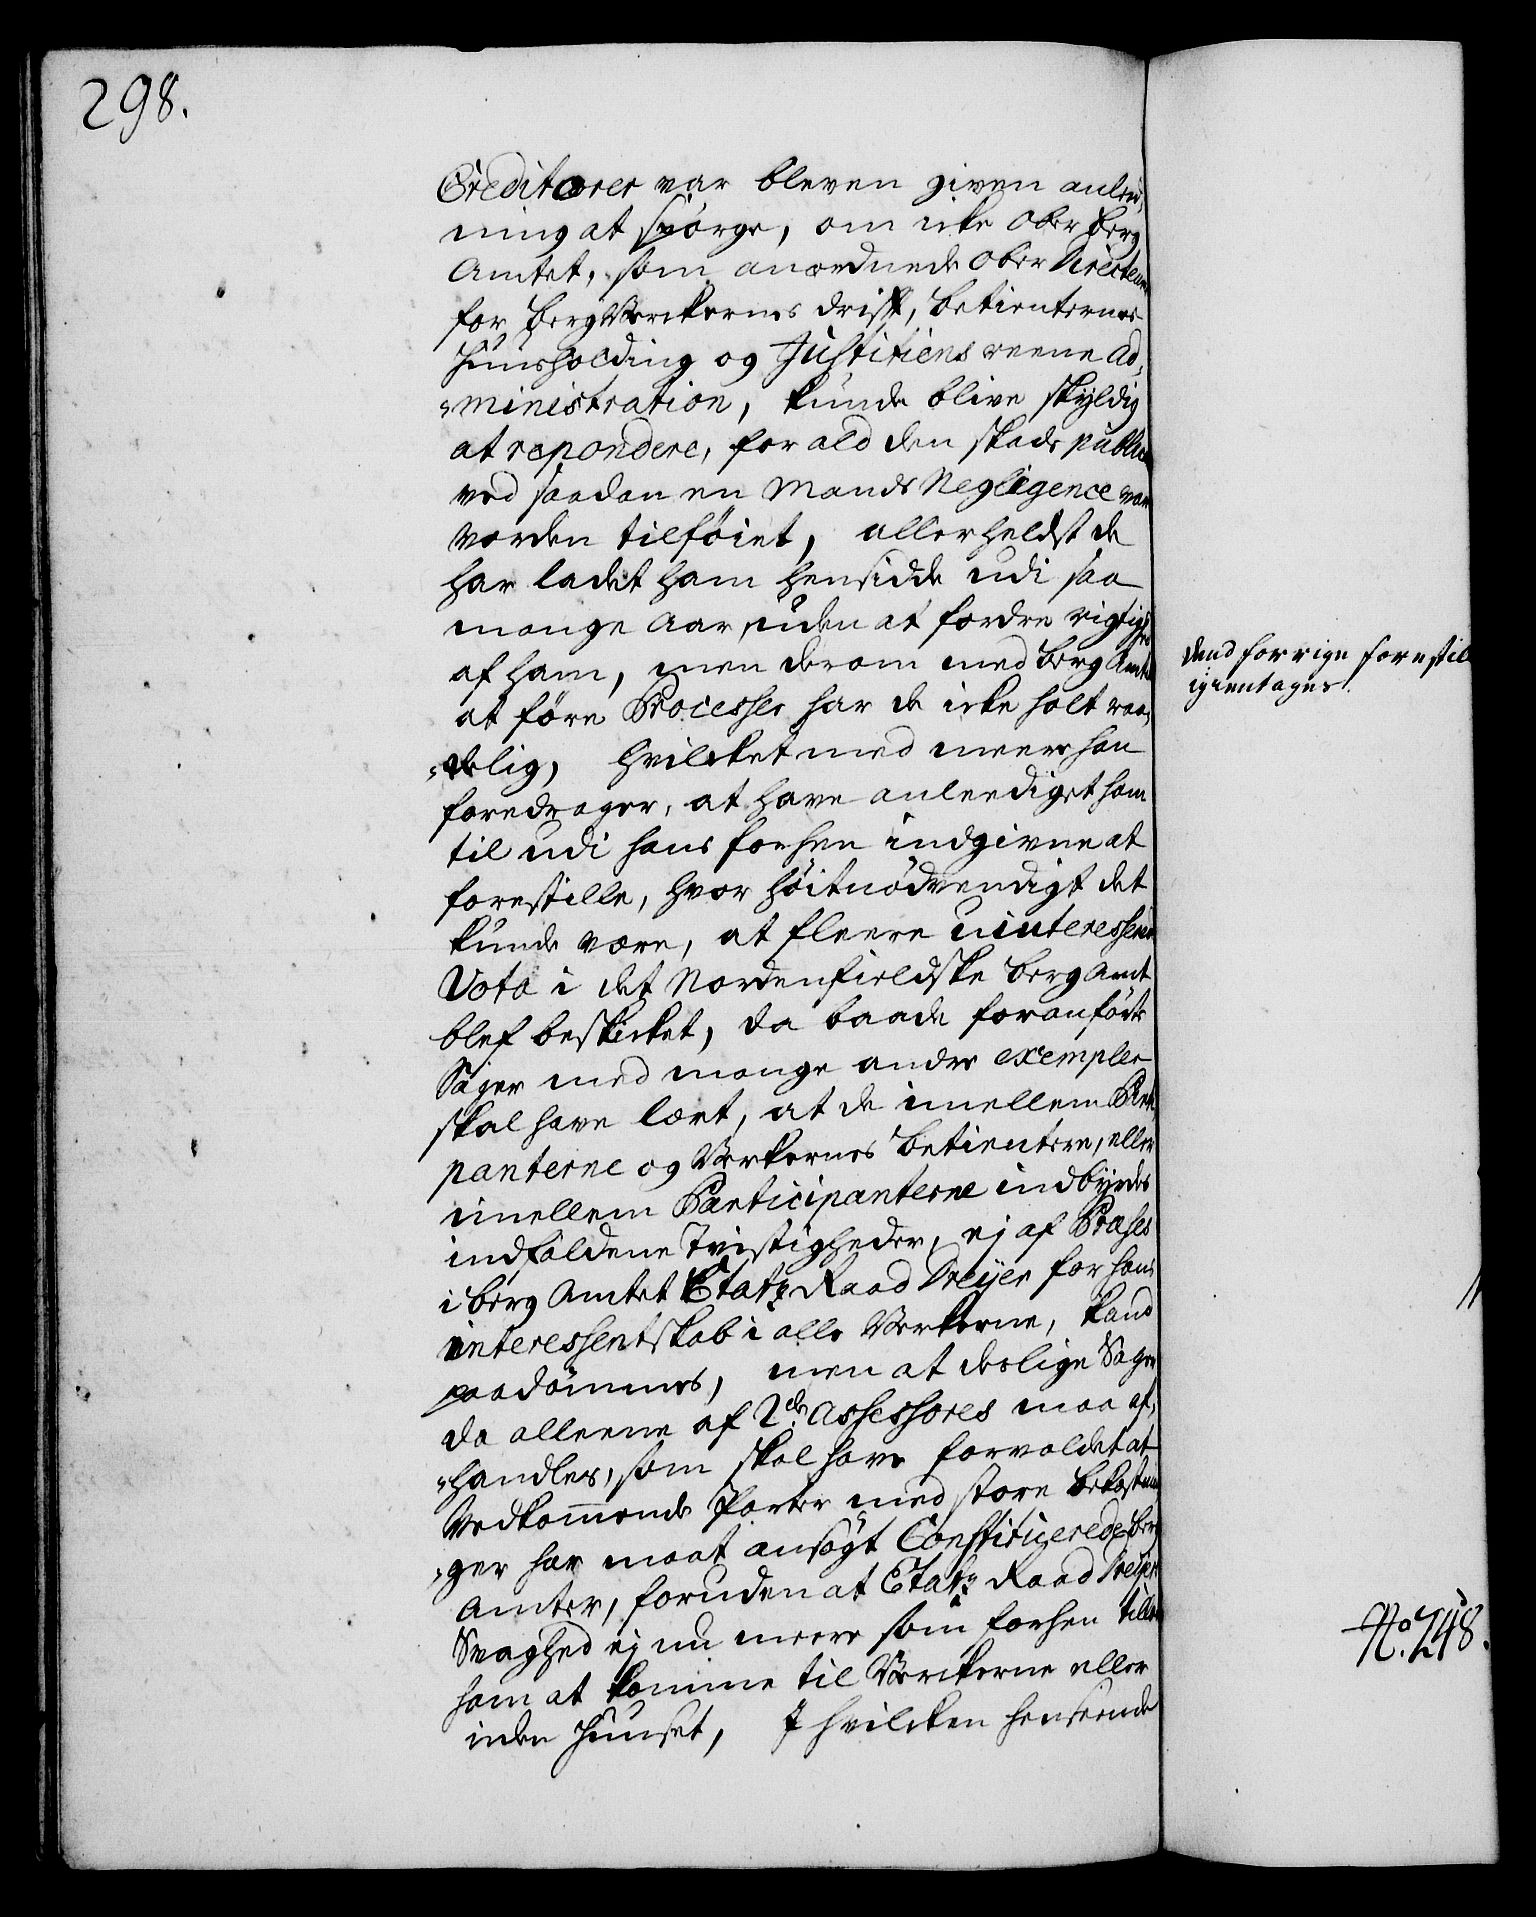 298.
Creditorer var bleven given anlee,
ning at spörge, om icke Ober Berg
Amtet, som anordnede Ober Directeurer
for BergVerckernes drift, betienternes
Huusholding og Justitiens reene Ad,
"ministration, kunde blive skyldig
at repondere, for ald den skade publico
ved saadan en Mands Negligence var
vorden tilföiet, allerheldst de
har ladet ham hensidde udi saa
mange Aar, uden at fordre rigtighed
af ham, men derom med Berg Amtet
at före Processer har de icke holt raa,
"delig, hvilcket med meere han
foredrager, at have anleediget ham
til udi hans forhen indgivne at
forestille, hvor höitnödvendigt det
kunde være, at fleere uinteresserede
Vota i det Nordenfieldske Berg Amt
blef beskicket, da baade foranförte
Sager med mange andre exempler
skal have lært, at de imellem Parti
panterne og Verkernes betientere, eller
imellem Participanterne indbyrdes
indfaldene Tvistigheder, ej af Præses
i Berg Amtet Etatz Raad Dreÿer for hans
interessentskab i alle Verkerne, kand
paadömmes, men at deslige Sager
da alleene af 2de Assessores maa af,
"handles, som skal have forvoldet at
Vedkommende Parter med store bekostnin
"ger har maat ansögt Constituerede Berg
Amter, foruden at Etatz Raad Dreÿers
Svaghed ej nu meere som forhen tillader
ham at komme til Verckerne eller
uden Huuset, I hvilcken henseende
dend forrige forestil
igientages.
No. 248.